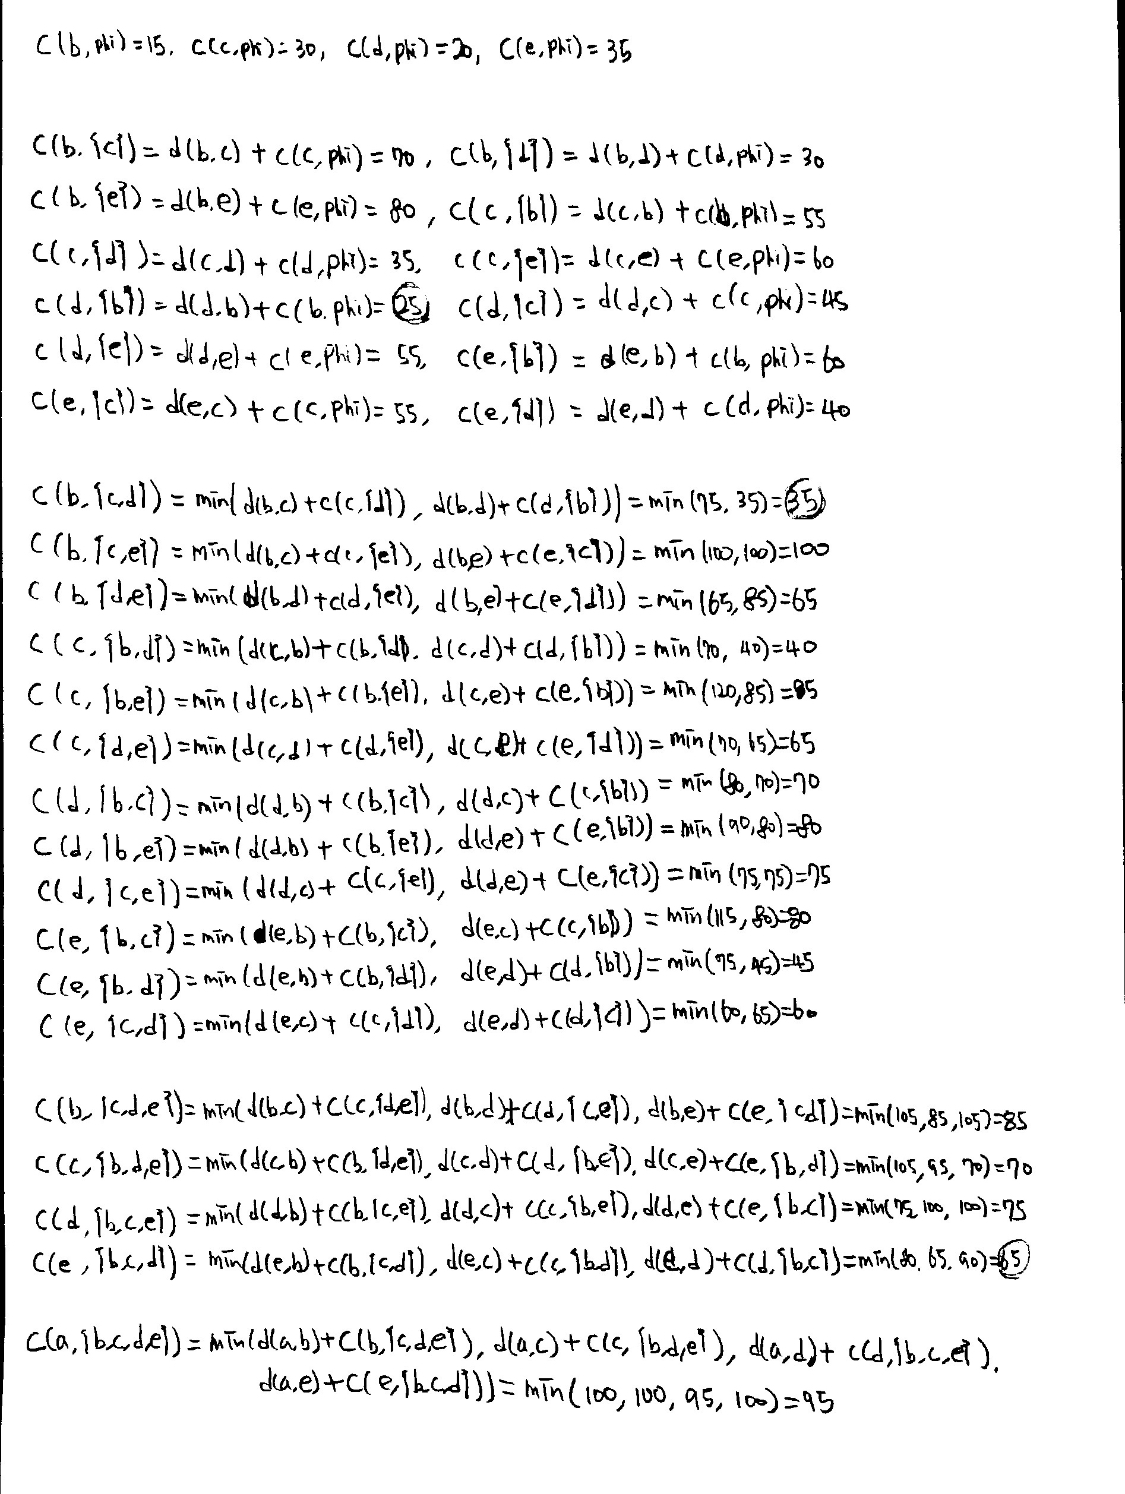 C(b,phi)=15. C(c,phi)=30, C(d,phi)=20, C(e,phi)=35
C(b.{c})=d(b.c)+c(c,phi)=70, C(b,{d})=d(b,d)+C(d,phi)=30
C(b.{e})=d(b.e)+c(e,phi)=80, C(c,{b})=d(c,b)+c(b,phi)=55
C(c,{d})=d(c,d)+c(d,phi)=35. c(c,{e})=d(c,e)+C(e,phi)=60
c(d,{b})=d(d.b)+c(b.phi)=25, c(d,{c})=d(d,c)+c(c,phi)=45
c(d,{e})=d(d,e)+c(e,phi)=55, c(e,{b})=d(e,b)+c(b,phi)=60
C(e,{c})=d(e,c)+c(c,phi)=55, c(e,{d})=d(e,d)+c(d,phi)=40
C(b,{c,d})=min(d(b,c)+c(c,{d}), d(b,d)+c(d,{b}))=min(75,35)=35
C(b,{c,e})=min(d(b,c)+c(c,{e}), d(b,e)+c(e,{c}))=min(100,100)=100
C(b,{d,e})=min(d(b,d)+c(d,{e}), d(b,e)+c(e,{d}))=min(65,85)=65
C(c,{b,d})=min(d(c,b)+c(b,{d}). d(c,d)+c(d,{b}))=min(70,40)=40
C(c,{b,e})=min(d(c,b)+c(b.{e}), d(c,e)+c(e,{b}))=min(120,85)=85
C(c,{d,e})=min(d(c,d)+c(d,{e}), d(c,e)+c(e,{d}))=min(70,65)=65
C(d,{b.c})=min(d(d,b)+c(b,{c}), d(d,c)+C(c,{b}))=min(80,70)=70
C(d,{b,e})=min(d(d,b)+c(b,{e}), d(d,e)+C(e,{b}))=min(90,80)=80
C(d,{c,e})=min(d(d,c)+c(c,{e}), d(d,e)+C(e,{c}))=min(75,75)=75
C(e,{b,c})=min(d(e,b)+C(b,{c}), d(e,c)+C(c,{b}))=min(115,80)=80
C(e,{b.d})=min(d(e,b)+C(b,{d}), d(e,d)+C(d,{b}))=min(75,45)=45
C(e,{c,d})=min(d(e,c)+c(c,{d}), d(e,d)+C(d,{c}))=min(60,65)=60
C(b,{c,d,e})=min(d(b,c)+C(c,{d,e}), d(b,d)+C(d,{c,e}), d(b,e)+C(e,{c,d})=min(105,85,105)=85
C(c,{b,d,e})=min(d(c,b)+C(b,{d,e}), d(c,d)+C(d,{b,e}), d(c,e)+C(e,{b,d})=min(105,95,70)=70
C(d,{b,c,e})=min(d(d,b)+C(b,{c,e}), d(d,c)+C(c,{b,e}), d(d,e)+C(e,{b,c})=min(75,100,100)=75
C(e,{b,c,d})=min(d(e,b)+c(b,{c,d}), d(e,c)+C(c,{b,d}), d(e,d)+C(d,{b,c})=min(80.65.90)=65
C(a,{b,c,d,e})=min(d(a,b)+C(b,{c,d,e}), d(a,c)+C(c,{b,d,e}), d(a,d)+C(d,{b,c,e}).
d(a,e)+C(e,{b,c,d}))=min(100,100,95,100)=95